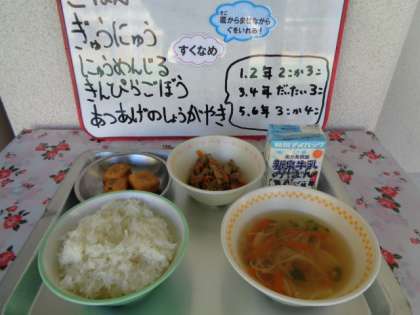 ごはん
ぎゅうにゅう
にゅうめんじる
きんぴらごぼう
あつあげのしょうがやき
すくなめ
底からまぜながら
ぐをいれる!
1.2年 2こか3こ
3.4年 だいたい3こ
5.6年 3こか4こ
牛乳